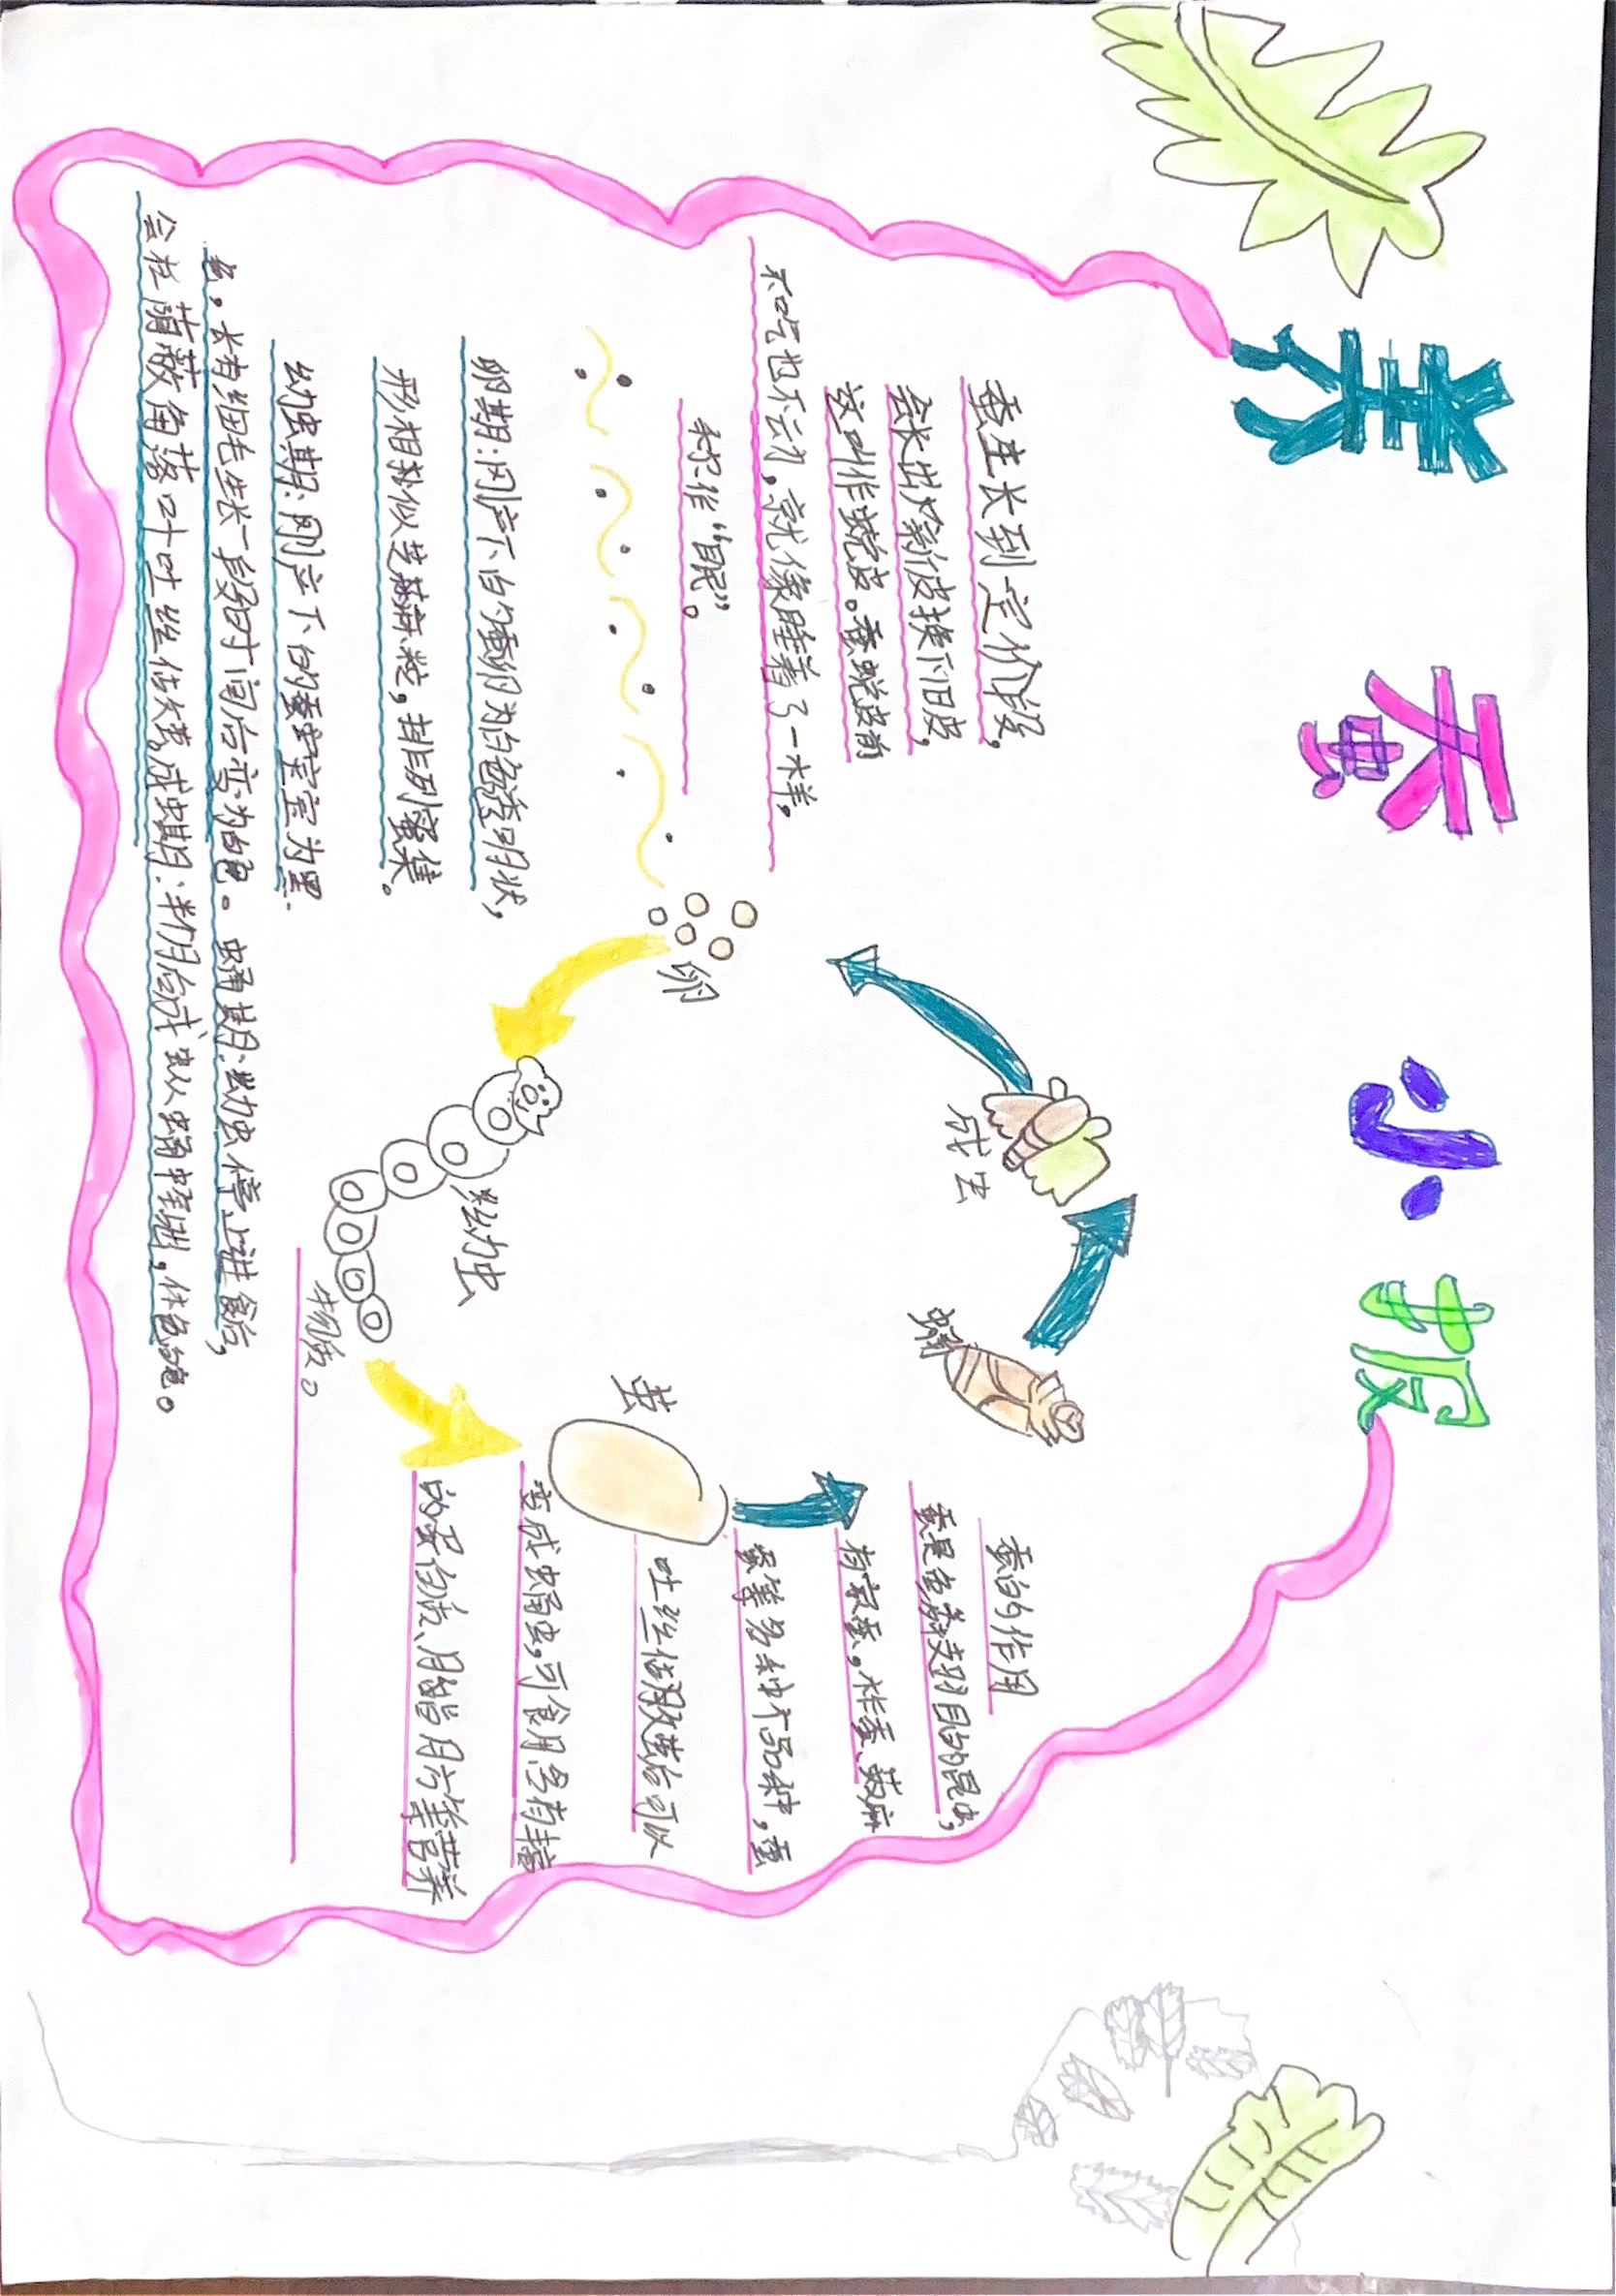 养蚕小报
蚕生长到一定阶段,
会长出新皮换下旧皮,
这叫作蜕皮。蚕蜕皮前
不吃也不动,就像睡着了一样,
称作“眠”。
卵期:刚产下白蚕卵为白色透明状,
形相似芝麻粒,排列密集。
幼虫期:刚产下的蚕宝宝为黑
色,长有细毛生长一段时间后变为白色。蛹期:幼虫停止进食后,
会找隐蔽角落叶吐丝作茧。成虫期:半个月后成虫从蛹中里出,体色白色。
卵
幼虫
茧
蛹
成虫
蚕的作用
蚕是鳞翅目的昆虫,
有家蚕,柞蚕、蓖麻
蚕等多种不品种,蚕
吐丝作茧后可以
变成蛹虫,可食用多有丰富
的蛋白质、脂肪等营养
物质。